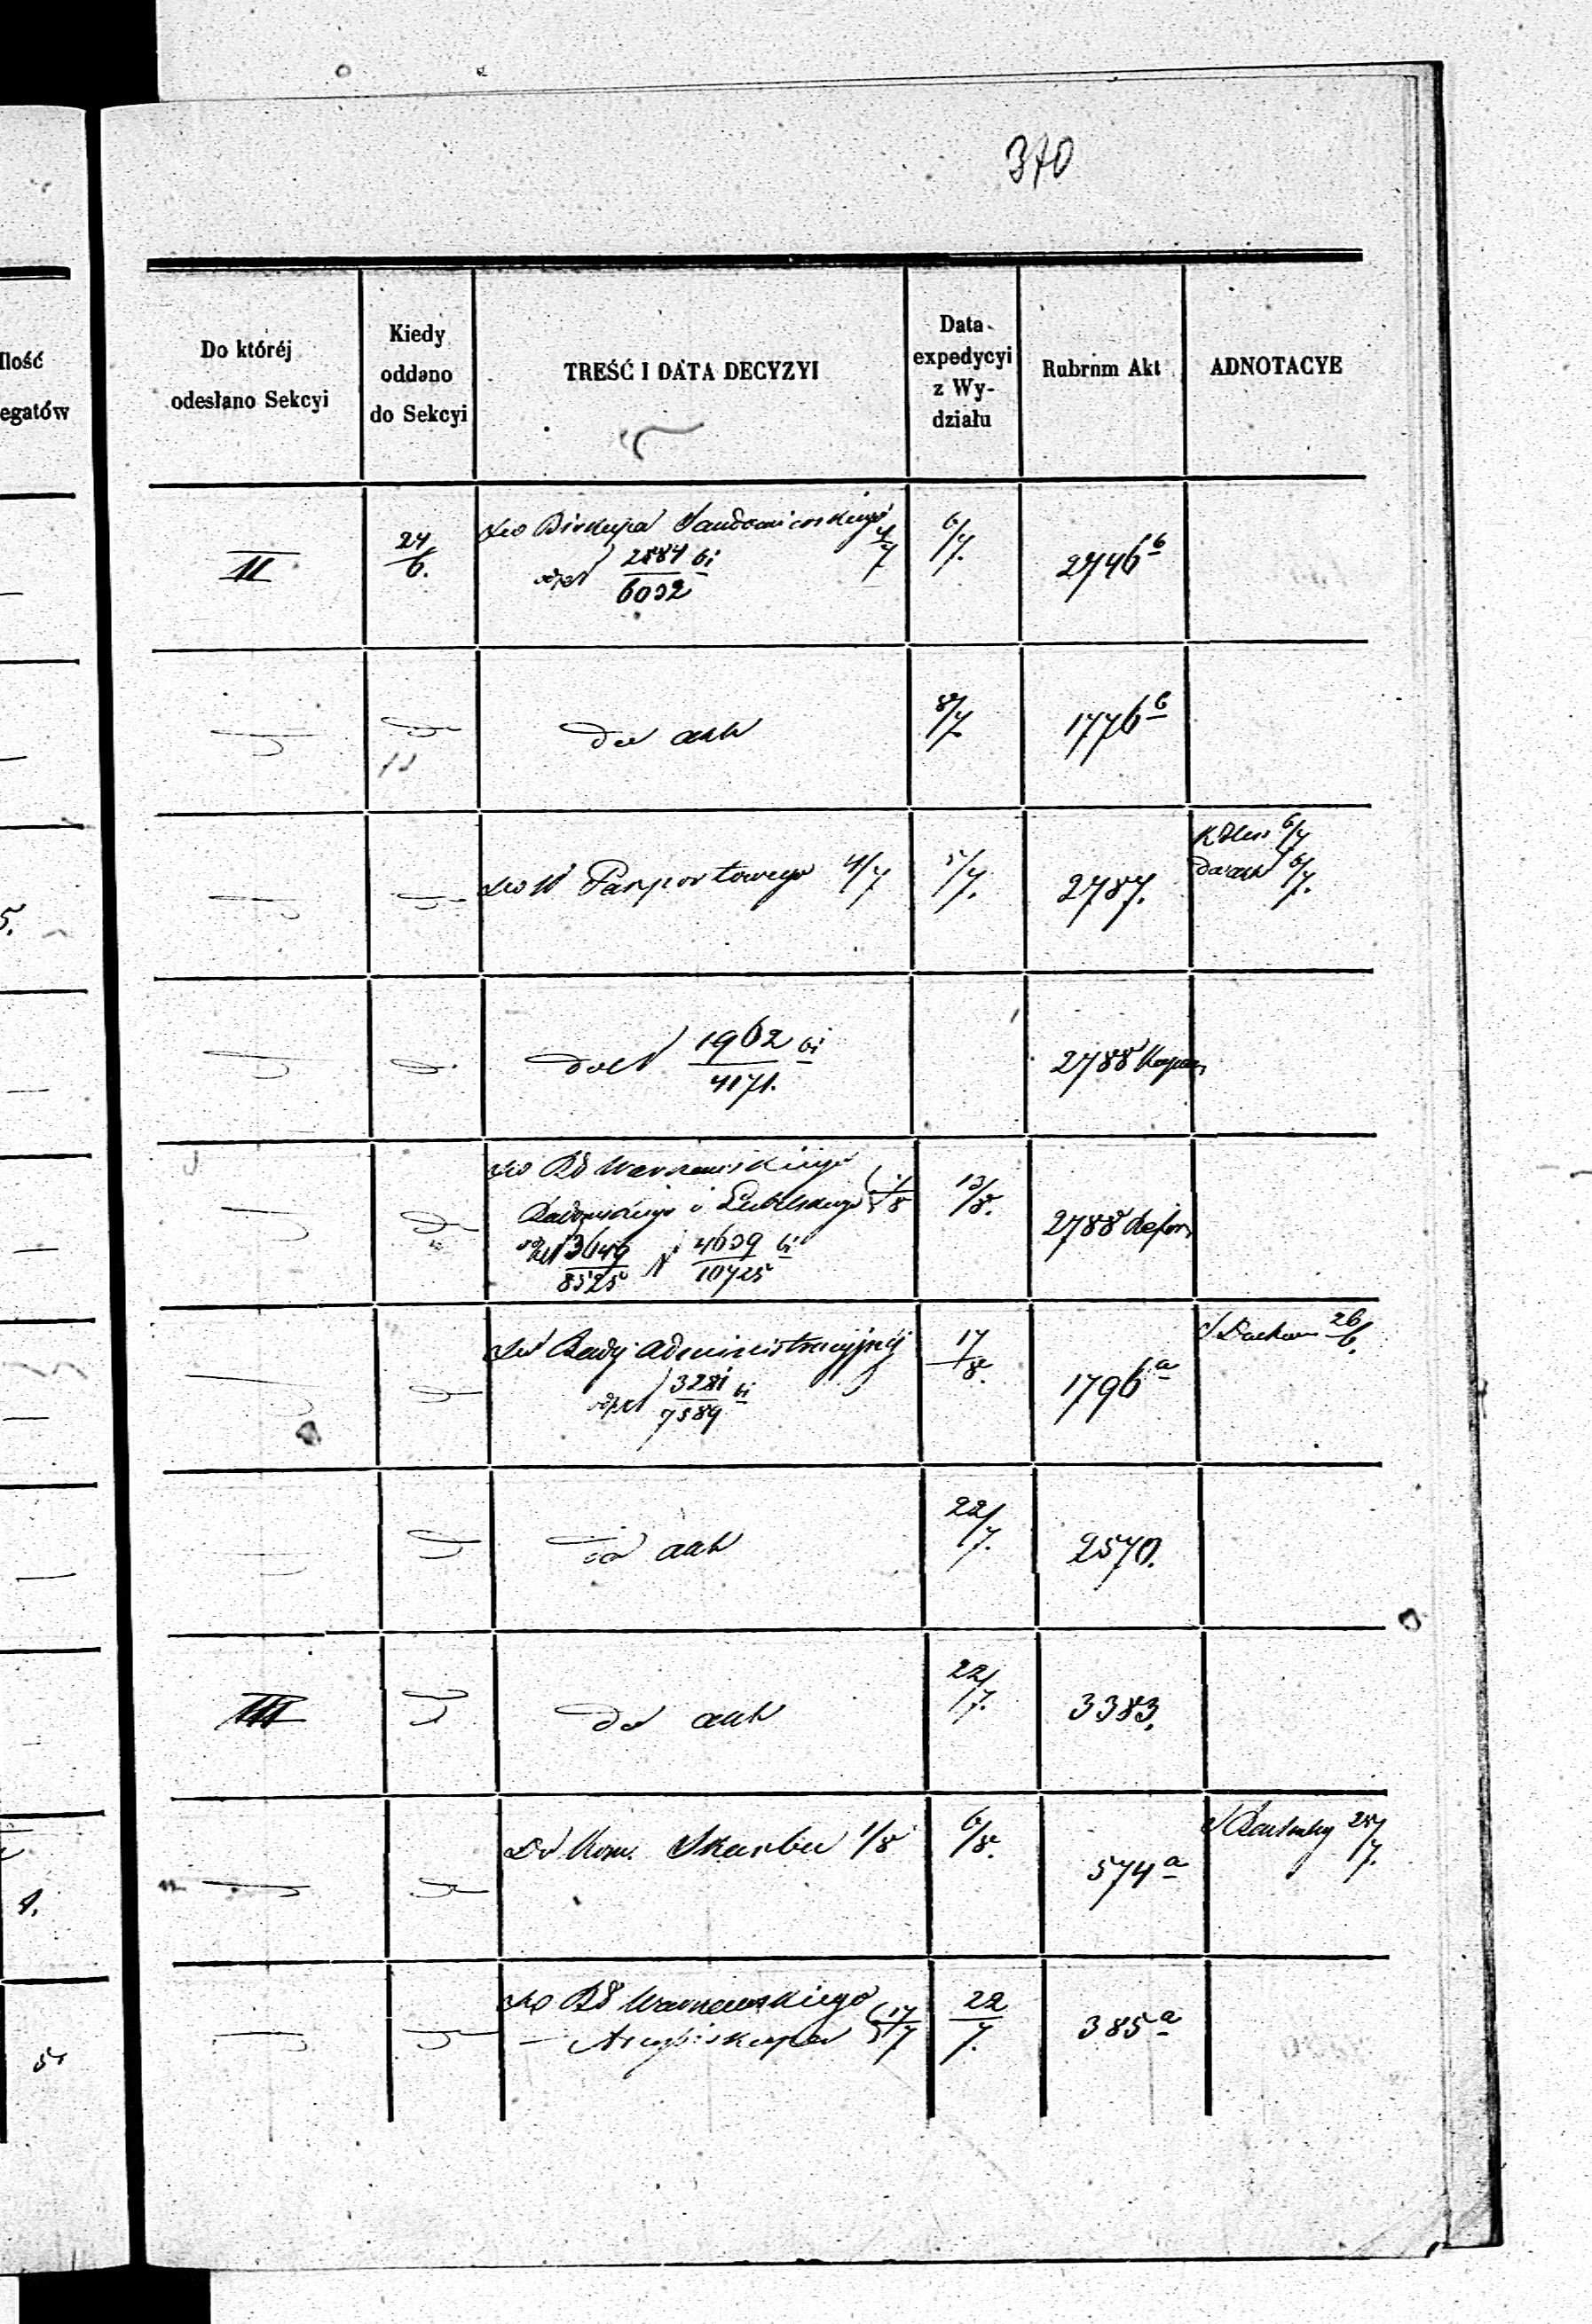 370
Ilość
egatów
Do któréj
odesłano Sekcyi
Kiedy
oddano
do Sekcyi
TREŚĆ I DATA DECYZYI
Data
expedycyi
z Wy-
działu
Rubrum Akt
ADNOTACYE
II
24/6.
Do Biskupa Sandomierskiego 4/7
2584 bi
6032
6/7.
2746 b
do akt
8/7.
1776 b
Do W Pasportowego 4/7
5/7.
2787.
6/7
do akt 6/7.
5.
do N 1962 bi
4171.
2788
Do RG Warszawskiego
Radomskiego i Lubelskiego 1/8
3649 N 4639 bi
8525 10725
13/8.
2788
Do Rady Administracyjnéj
3281 bi
7589
17/8.
1796 a
26/6.
do akt
22/7.
2570.
III
do akt
22/7.
3383.
Do Kom. Skarbu 1/8
6/8.
574 a
25/7.
1.
Do RG Warszawskiego
— Arcybiskupa 17/7
22/7.
385 a
5.